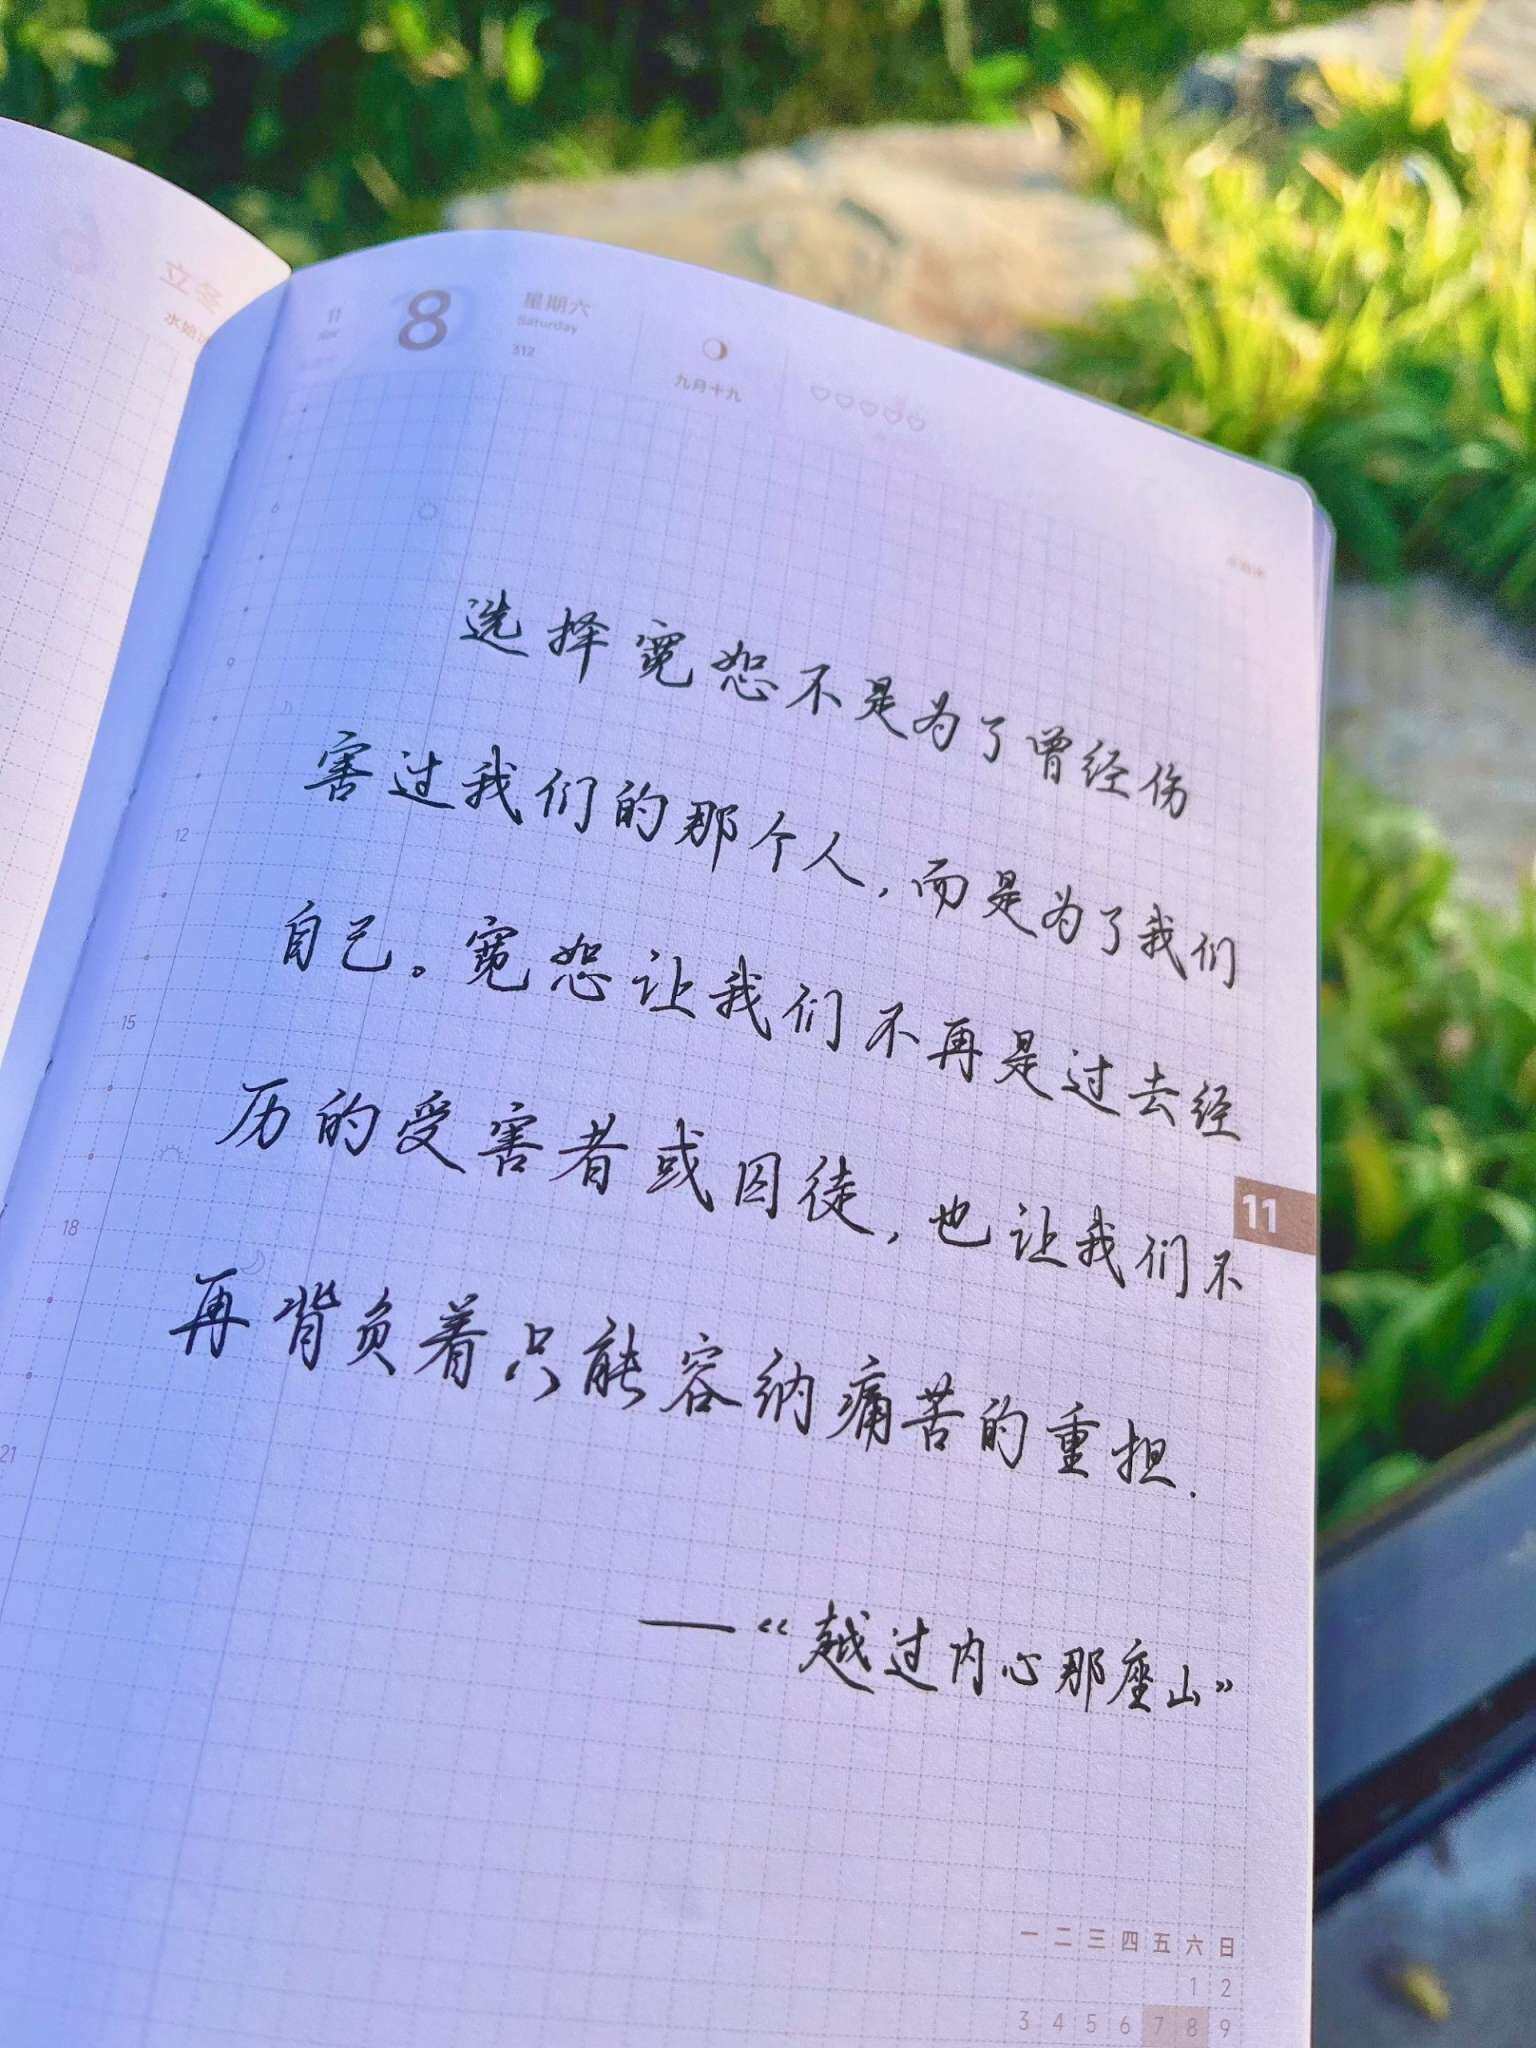 立冬
水始
11
8
星期六
Saturday
312
九月十九
6
9
12
15
18
21
选择宽恕不是为了曾经伤
害过我们的那个人，而是为了我们
自己。宽恕让我们不再是过去经
历的受害者或囚徒，也让我们不
再背负着只能容纳痛苦的重担.
——“越过内心那座山”
11
一 二 三 四 五 六 日
1 2
3 4 5 6 7 8 9